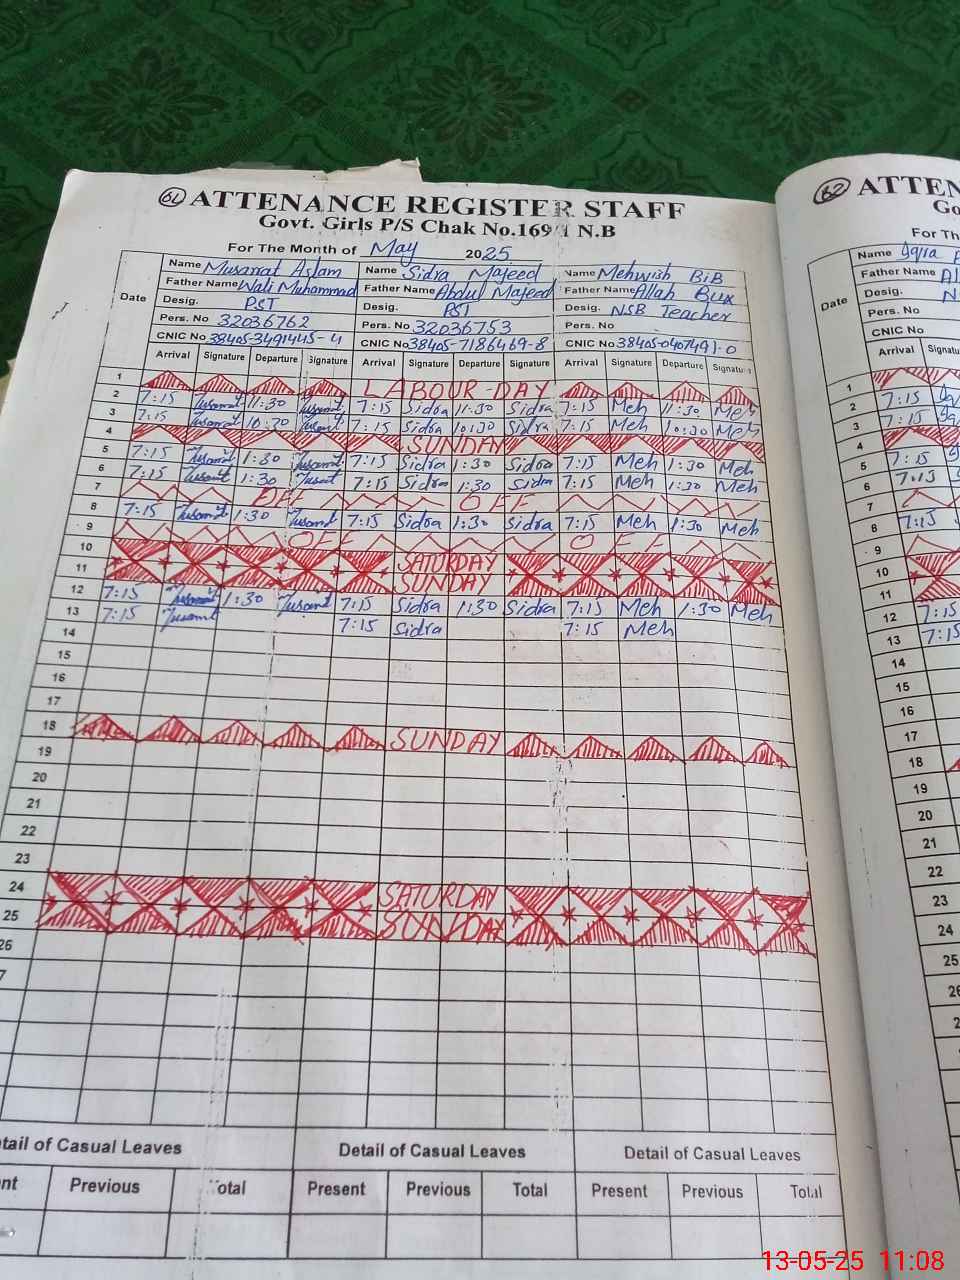 61 ATTENANCE REGISTER STAFF
Govt. Girls P/S Chak No.169/1 N.B
For The Month of May 2025
Name Musarrat Aslam Name Sidra Majeed Name Mehwish BiB
Father Name Wali Muhammad Father Name Abdul Majeed Father Name Allah Bux
Date Desig. PST Desig. PST Desig. NSB Teacher
Pers. No 32036762 Pers. No 32036753 Pers. No
CNIC No 38405-3491445-4 CNIC No 38405-7186469-8 CNIC No
Arrival Signature Departure Signature Arrival Signature Departure Signature Arrival Signature Departure Signature
1 LABOUR-DAY
2 7:15 11:30 7:15 Sidra 11:30 Sidra 7:15 Meh 11:30 Meh
3 7:15 10:30 7:15 Sidra 10:30 Sidra 7:15 Meh 10:30 Meh
4 SUNDAY
5 7:15 1:30 7:15 Sidra 1:30 Sidra 7:15 Meh 1:30 Meh
6 7:15 1:30 7:15 Sidra 1:30 Sidra 7:15 Meh 1:30 Meh
7 OFF OFF
8 7:15 1:30 7:15 Sidra 1:30 Sidra 7:15 Meh 1:30 Meh
9 OFF OFF
10 SATURDAY
11 SUNDAY
12 7:15 1:30 7:15 Sidra 1:30 Sidra 7:15 Meh 1:30 Meh
13 7:15 7:15 Sidra 7:15 Meh
14
15
16
17
18 SUNDAY
19
20
21
22
23
24 SATURDAY
25 SUNDAY
26
7
tail of Casual Leaves Detail of Casual Leaves Detail of Casual Leaves
nt Previous Total Present Previous Total Present Previous Total
62 ATTEN
Go
For Th
Name Iqra
Father Name
Date Desig. N
Pers. No
CNIC No
Arrival Signatu
1
2 7:15
3 7:15
4
5 7:15
6 7:15
7
8 7:15
9
10
11
12 7:15
13 7:15
14
15
16
17
18
19
20
21
22
23
24
25
26
2
13-05-25 11:08